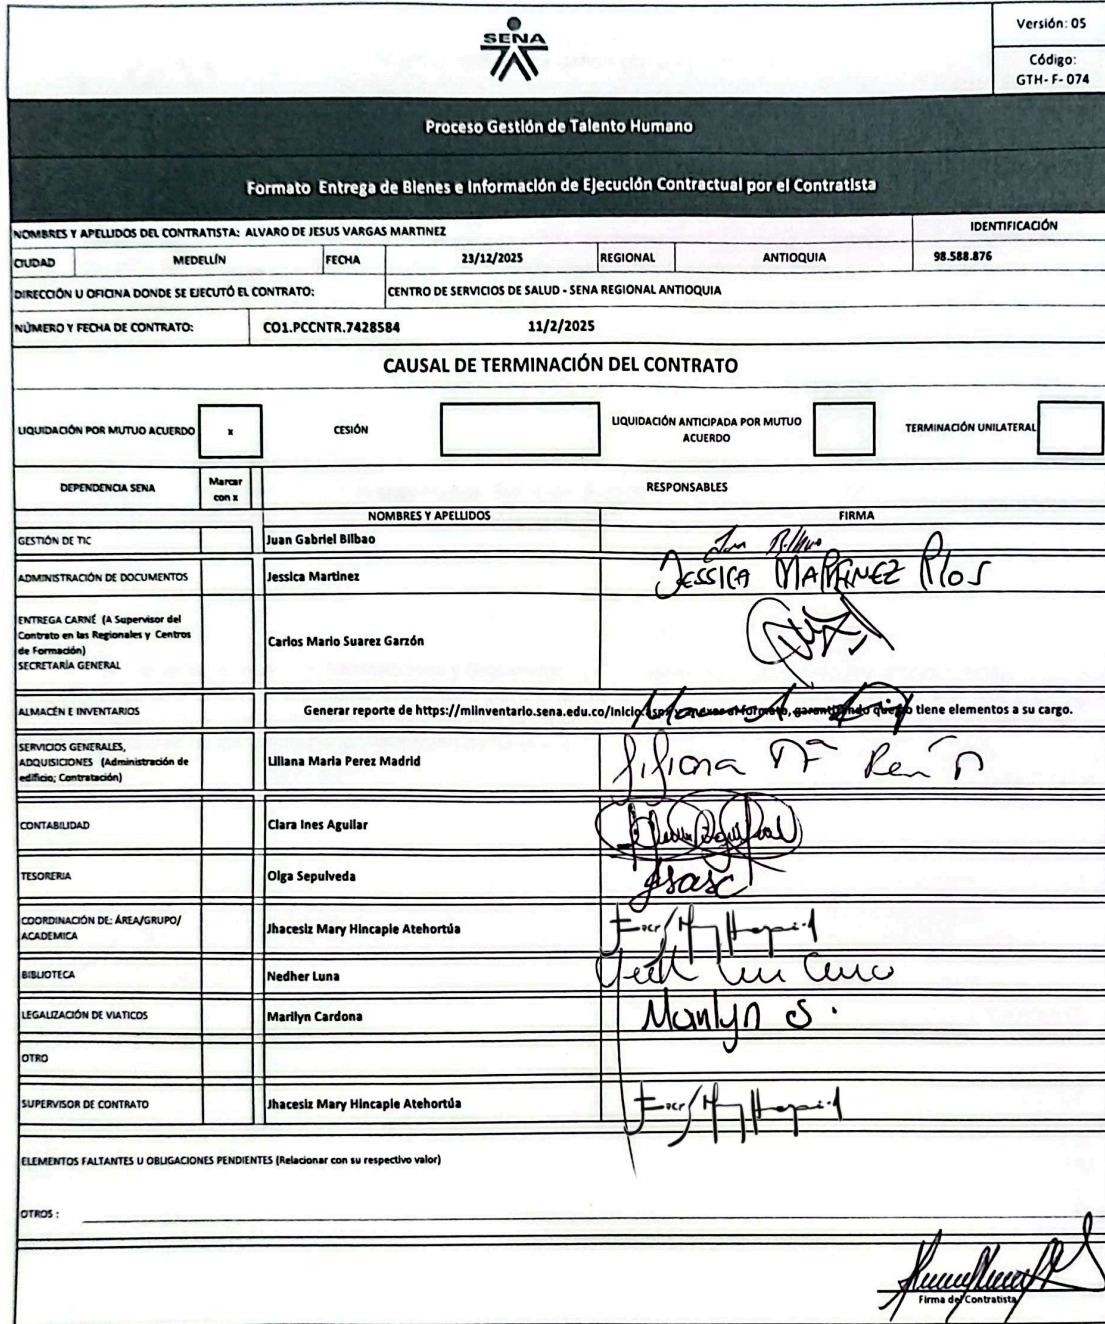 SENA
Versión: 05
Código:
GTH- F- 074
Proceso Gestión de Talento Humano
Formato Entrega de Bienes e Información de Ejecución Contractual por el Contratista
NOMBRES Y APELLIDOS DEL CONTRATISTA: ALVARO DE JESUS VARGAS MARTINEZ
IDENTIFICACIÓN
CIUDAD MEDELLÍN FECHA 23/12/2025 REGIONAL ANTIOQUIA 98.588.876
DIRECCIÓN U OFICINA DONDE SE EJECUTÓ EL CONTRATO: CENTRO DE SERVICIOS DE SALUD - SENA REGIONAL ANTIOQUIA
NÚMERO Y FECHA DE CONTRATO: CO1.PCCNTR.7428584 11/2/2025
CAUSAL DE TERMINACIÓN DEL CONTRATO
LIQUIDACIÓN POR MUTUO ACUERDO x CESIÓN LIQUIDACIÓN ANTICIPADA POR MUTUO ACUERDO TERMINACIÓN UNILATERAL
DEPENDENCIA SENA Marcar con x RESPONSABLES
NOMBRES Y APELLIDOS FIRMA
GESTIÓN DE TIC Juan Gabriel Bilbao
ADMINISTRACIÓN DE DOCUMENTOS Jessica Martinez JESSICA MARTINEZ RIOS
ENTREGA CARNÉ (A Supervisor del
Contrato en las Regionales y Centros
de Formación)
SECRETARÍA GENERAL
Carlos Mario Suarez Garzón
ALMACÉN E INVENTARIOS Generar reporte de https://miinventario.sena.edu.co/Inicio tiene elementos a su cargo.
SERVICIOS GENERALES,
ADQUISICIONES (Administración de
edificio; Contratación)
Liliana Maria Perez Madrid Liliana
CONTABILIDAD Clara Ines Aguilar
TESORERIA Olga Sepulveda
COORDINACIÓN DE: ÁREA/GRUPO/
ACADEMICA
Jhacesiz Mary Hincapie Atehortúa
BIBLIOTECA Nedher Luna
LEGALIZACIÓN DE VIATICOS Marilyn Cardona Marilyn S.
OTRO
SUPERVISOR DE CONTRATO Jhacesiz Mary Hincapie Atehortúa
ELEMENTOS FALTANTES U OBLIGACIONES PENDIENTES (Relacionar con su respectivo valor)
OTROS :
Firma del Contratista